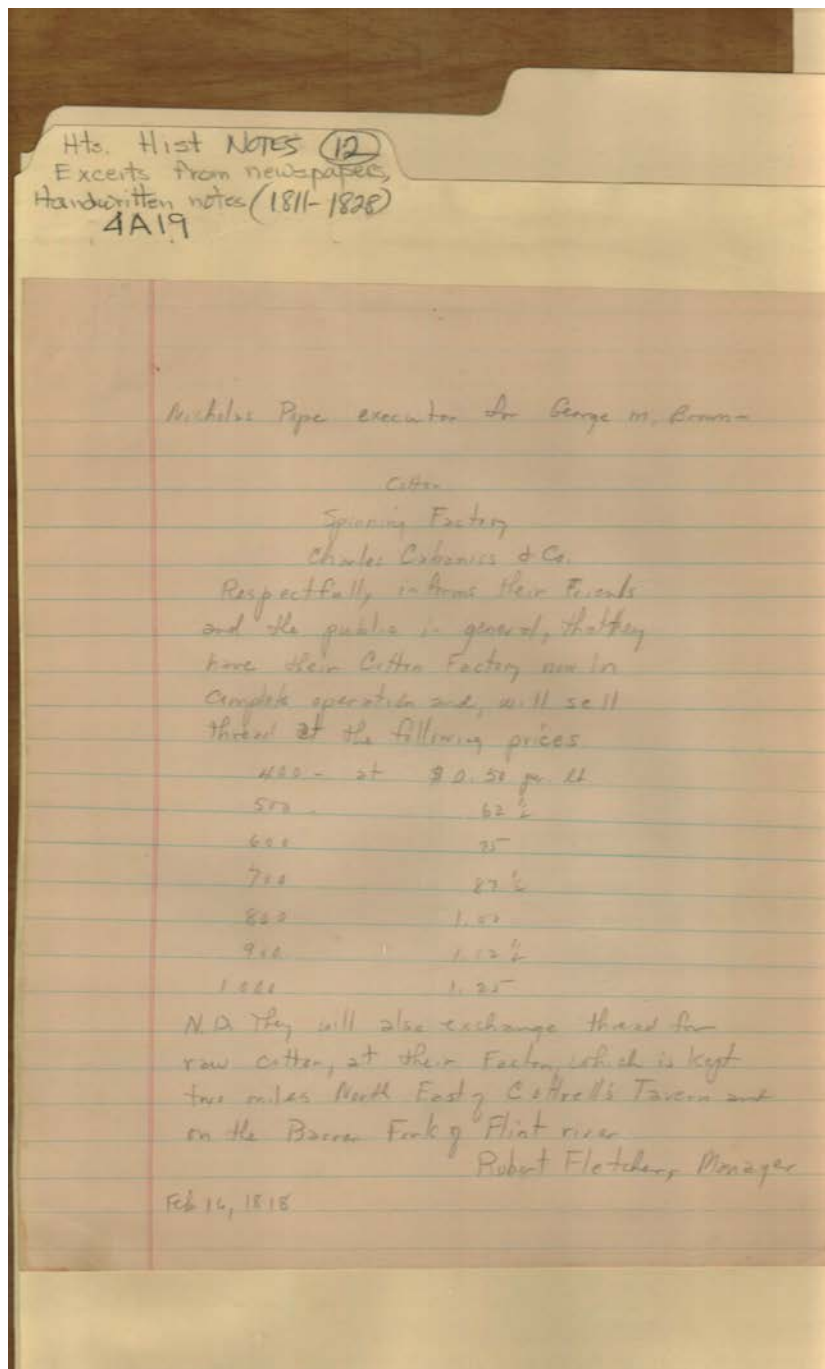 Hts. Hist NOTES (12)
Excerts from newspapers,
Handwritten notes (1811-1828)
4A19
Nicholas Pope executor for George M. Brown-
Cotton
Spinning Factory
Charles Cabanics & Co.
Respectfully informs their Friends
and the public in general, that they
have their Cotton Factory now in
complete operation and, will sell
thread at the following prices
400 - at $0.50 per lb
500 - 62 ½
600 75
700 87 ½
800 1.00
900 1.12 ½
1000 1.25
N.B. They will also exchange thread for
raw cotton, at their Factory, which is kept
two miles North East of Cottrell's Tavern and
on the Barren Fork of Flint river
Robert Fletcher, Manager
Feb 16, 1818